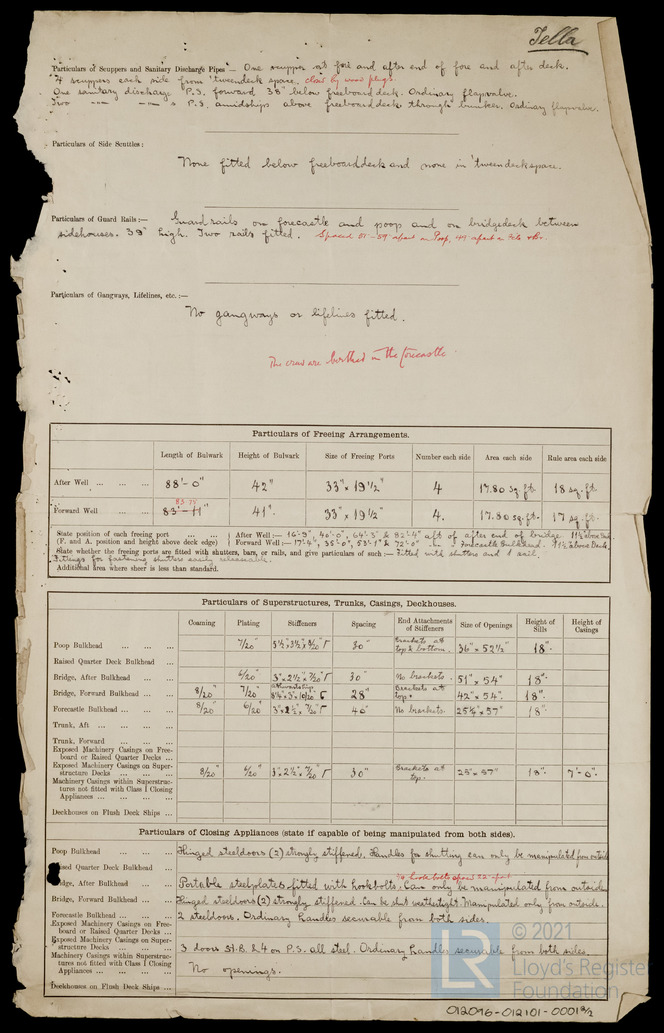 Tella
Particulars of Scuppers and Sanitary Discharge Pipes — One scupper at fore and after end of fore and after deck.
4 scuppers each side from 'tweendeck space. closed by wood plugs.
One sanitary discharge P.S. forward 38" below freeboard deck. Ordinary flapvalve.
Two —"— —"— P.S. amidships above freeboarddeck through bunker. Ordinary flapvalve.
Particulars of Side Scuttles :
None fitted below freeboarddeck and none in 'tweendeckspace.
Particulars of Guard Rails :— Guardrails on forecastle and poop and on bridgedeck between
sidehouses. 39" high. Two rails fitted. Spaced 51"-59" apart on Poop, 49" apart on Fcts & Br.
Particulars of Gangways, Lifelines, etc. :—
No gangways or lifelines fitted.
The crew are berthed in the forecastle.
Particulars of Freeing Arrangements.
Length of Bulwark Height of Bulwark Size of Freeing Ports Number each side Area each side Rule area each side
After Well ... ... ... 88'-0" 42" 33" x 19 1/2" 4 17.80 sq.ft. 18 sq.ft.
Forward Well ... ... 83'-11" 41". 33" x 19 1/2" 4. 17.80 sq.ft. 17 sq.ft.
State position of each freeing port ... ... ... After Well :— 16'-9", 40'-0", 64'-3" & 82'-4" aft of after end of bridge. 11 1/2" above deck
(F. and A. position and height above deck edge) Forward Well :— 17'-4", 35'-0", 53'-1" & 72'-0" —"— Forecastle Bulkhead. 11 1/2" above Deck.
State whether the freeing ports are fitted with shutters, bars, or rails, and give particulars of such :— Fitted with shutters and 1 rail.
Fittings for fastening shutters easily releasable.
Additional area where sheer is less than standard.
Particulars of Superstructures, Trunks, Casings, Deckhouses.
Coaming Plating Stiffeners Spacing End Attachments of Stiffeners Size of Openings Height of Sills Height of Casings
Poop Bulkhead ... ... ... 7/20" 30" Brackets at top & bottom. 36" x 52 1/2" 18".
Raised Quarter Deck Bulkhead ...
Bridge, After Bulkhead ... ... 6/20" 3" x 2 1/2" x 7/20" 30" No brackets. 51" x 54" 18".
Bridge, Forward Bulkhead ... ... 8/20" 7/20" 28" Brackets at top. 42" x 54". 18".
Forecastle Bulkhead ... ... ... 8/20" 6/20" 3" x 2 1/2" x 7/20" 40" No brackets. 25 3/4" x 57" 18".
Trunk, Aft ... ... ... ...
Trunk, Forward ... ... ... ...
Exposed Machinery Casings on Freeboard or Raised Quarter Decks ...
Exposed Machinery Casings on Superstructure Decks ... ... ... 8/20" 6/20" 3" x 2 1/2" x 7/20" 30" Brackets at top. 25" x 57" 18". 7'-0".
Machinery Casings within Superstructures not fitted with Class 1 Closing Appliances ... ... ... ...
Deckhouses on Flush Deck Ships ...
Particulars of Closing Appliances (state if capable of being manipulated from both sides).
Poop Bulkhead ... ... ... Hinged steeldoors (2) strongly stiffened. Handles for shutting can only be manipulated from outside
ised Quarter Deck Bulkhead ...
idge, After Bulkhead ... ... Portable steelplates fitted with hookbolts. Can only be manipulated from outside
Bridge, Forward Bulkhead ... ... Hinged steeldoors (2) strongly stiffened. Can be shut weathertight. Manipulated only from outside.
Forecastle Bulkhead ... ... ... 2 steeldoors. Ordinary handles securable from both sides.
Exposed Machinery Casings on Freeboard or Raised Quarter Decks ...
Exposed Machinery Casings on Superstructure Decks ... ... ... 3 doors St.B. & 4 on P.S. all steel. Ordinary handles securable from both sides
Machinery Casings within Superstructures not fitted with Class 1 Closing Appliances ... ... ... ... No openings.
Deckhouses on Flush Deck Ships ...
LR
© 2021
Lloyd's Register
Foundation
012096-012101-0001 2/2